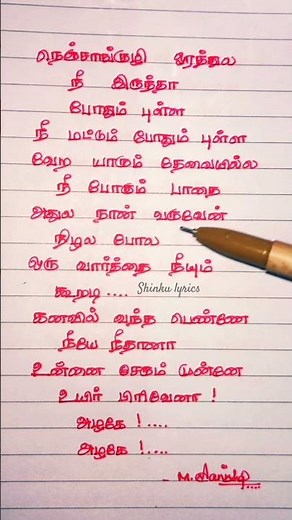 நெஞ்சாங்குழி ஓரத்துல
நீ இருந்தா
போதும் புள்ள
நீ மட்டும் போதும் புள்ள
வேற யாரும் தேவையில்ல
நீ போகும் பாதை
அதுல நான் வருவேன்
நிழல போல
ஒரு வார்த்தை நீயும்
கூறடி ....
Shinku lyrics
கனவில் வந்த பெண்ணே
நீயே நீதானா
உன்னை சேரும் முன்னே
உயிர் பிரிவேனா !
அழகே !....
அழகே !....
- M.